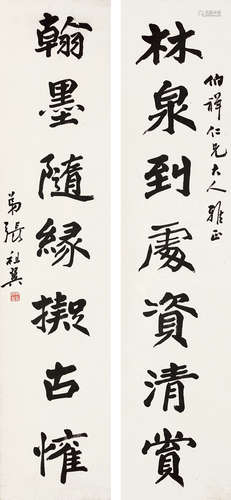 林泉到處資清賞
伯祥仁兄大人雅正
翰墨隨緣擬古懽
弟張祖翼